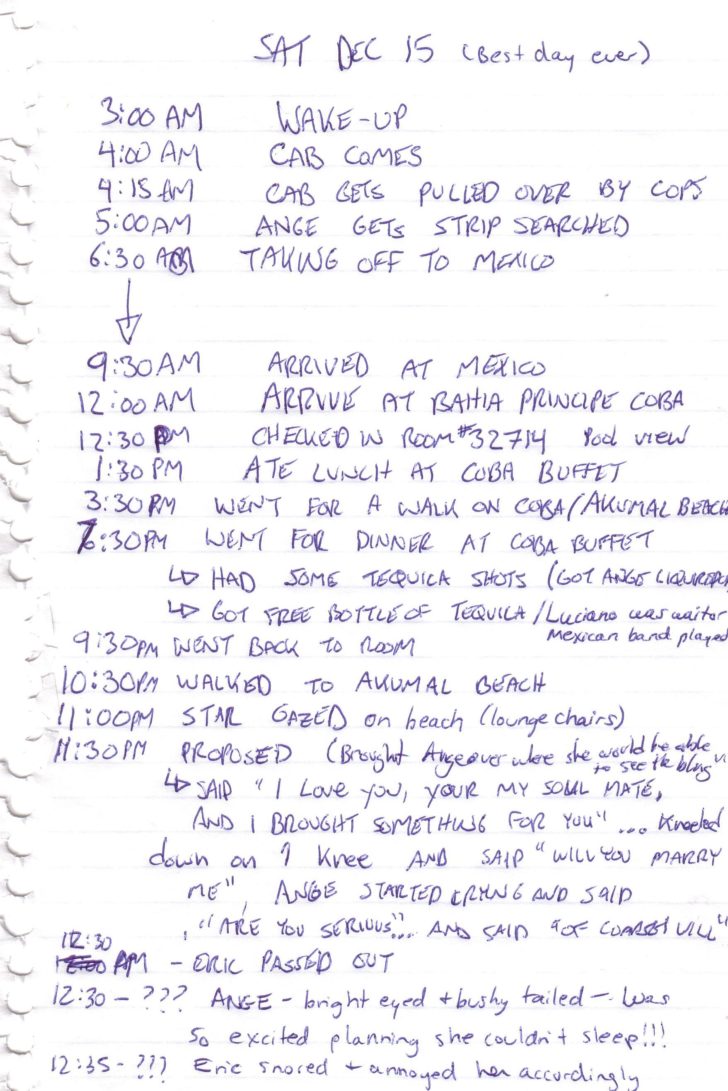 SAT DEC 15 (Best day ever)
3:00 AM WAKE-UP
4:00 AM CAB COMES
4:15 AM CAB GETS PULLED OVER BY COPS
5:00 AM ANGE GETS STRIP SEARCHED
6:30 AM TAKING OFF TO MEXICO
9:30 AM ARRIVED AT MEXICO
12:00 AM ARRIVE AT BAHIA PRINCIPE COBA
12:30 PM CHECKED IN ROOM #32714 Pool view
1:30 PM ATE LUNCH AT COBA BUFFET
3:30 PM WENT FOR A WALK ON COBA/AKUMAL BEACH
7:30PM WENT FOR DINNER AT COBA BUFFET
↳ HAD SOME TEQUILA SHOTS (GOT ANGE
↳ GOT FREE BOTTLE OF TEQUILA/Luciano was waitor
Mexican band played
9:30pm WENT BACK TO ROOM
10:30PM WALKED TO AKUMAL BEACH
11:00PM STAR GAZED on beach (lounge chairs)
11:30PM PROPOSED (Brought Ange over where she would be able
to see the bling
↳ SAID "I LOVE YOU, YOUR MY SOUL MATE,
AND I BROUGHT SOMETHING FOR YOU"... Kneeled
down on 1 Knee AND SAID "WILL YOU MARRY
ME", ANGE STARTED CRYING AND SAID
, "ARE YOU SERIOUS"... AND SAID "OF COARSE I WILL"
12:30
AM - ERIC PASSED OUT
12:30 - ??? ANGE - bright eyed + bushy tailed - Was
so excited planning she couldn't sleep!!!
12:35 - ??? Eric snored + annoyed her accordingly